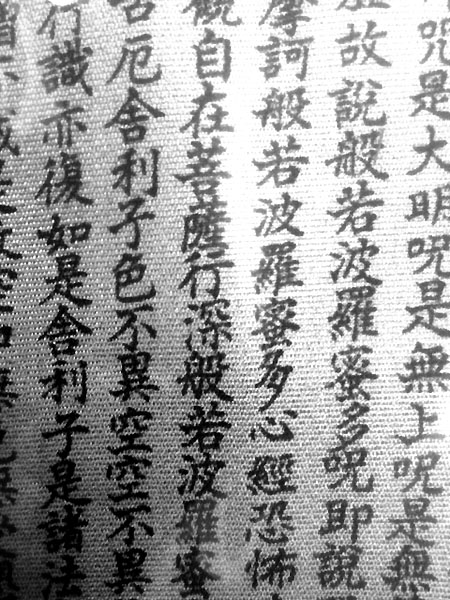 呪是大明呪是無上呪是無
虛故說般若波羅蜜多呪即說
摩訶般若波羅蜜多心經恐怖
觀自在菩薩行深般若波羅蜜
苦厄舍利子色不異空空不異
行識亦復如是舍利子是諸法